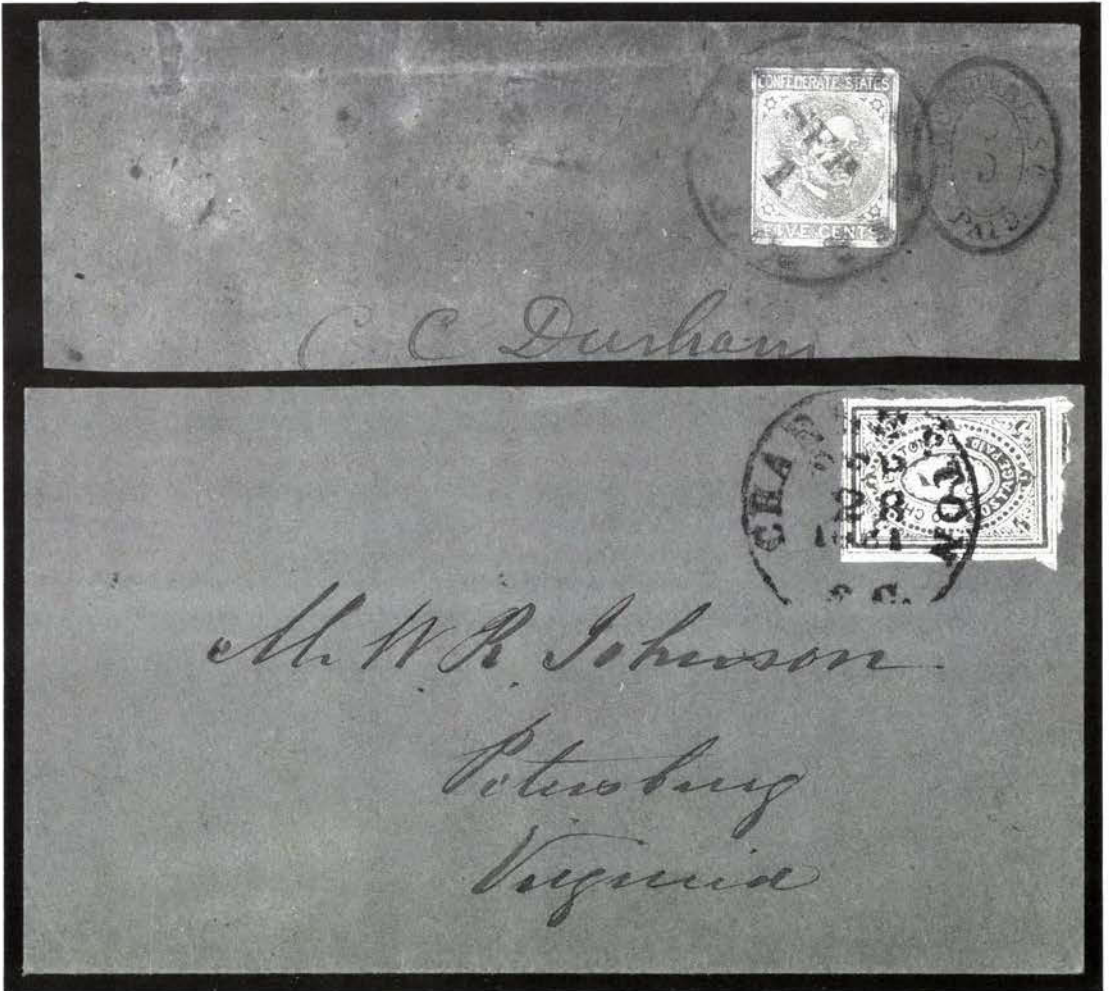 CONFEDERATE STATES
APR
1
FIVE CENTS
5
PAID.
C. C. Durham
CHARLESTON
1861
S.C.
5
PAID
M. W. R. Johnson
Petersburg
Virginia